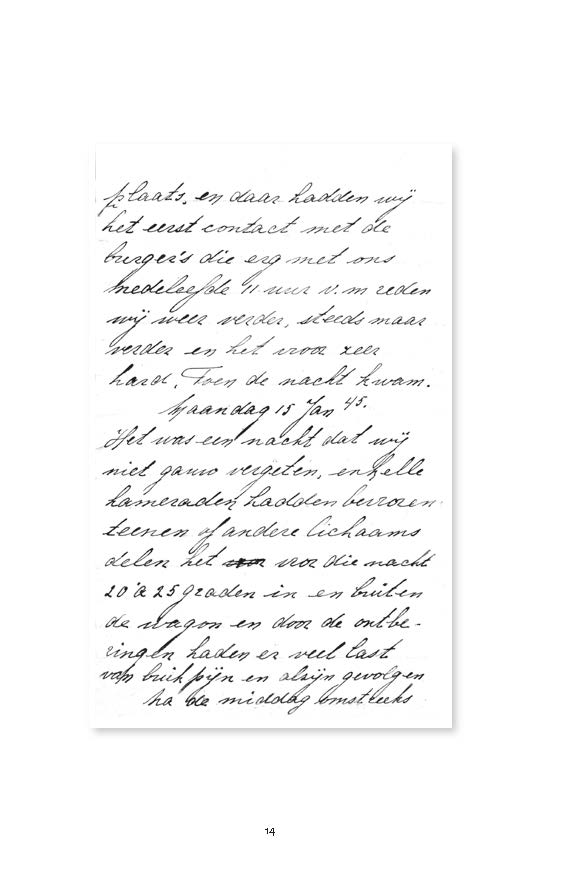 plaats, en daar hadden wij
het eerst contact met de
burger's die erg met ons
medeleefde 11 uur v.m reden
wij weer verder, steeds maar
verder en het vroor zeer
hard. Toen de nacht kwam.
Maandag 15 Jan 45.
Het was een nacht dat wij
niet gauw vergeten, enkelle
kameraden hadden bevroren
teenen of andere lichaams
delen het vror die nacht
20 a 25 graden in en buiten
de wagon en door de ontbe-
ringen haden er veel last
van buikpijn en alzijn gevolgen
na de middag omstreeks
14